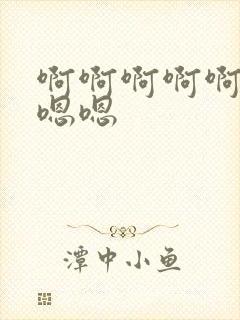 啊啊啊啊啊
嗯嗯
潭中小鱼